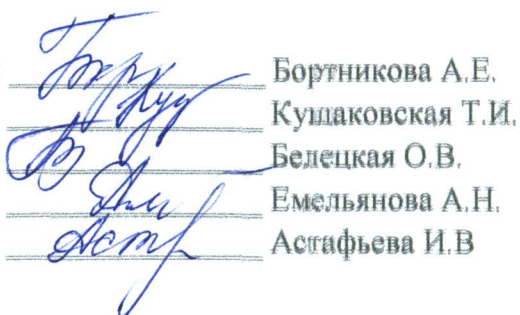 Бортникова А.Е.
Кушаковская Т.И.
Белецкая О.В.
Емельянова А.Н.
Астафьева И.В